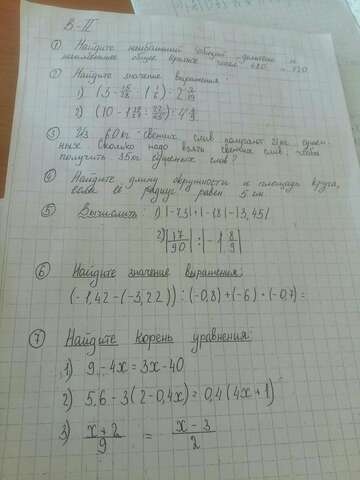 В-II
① Найдите наибольший общий делитель и
наименьшее общее кратное чисел 480 и 120
② Найдите значение выражения:
1) (3 - : 1 ) : 2
2) (10 - 1 : ) : 4
③ Из 60 кг свежих слив получают 21 кг сушен-
ных. Сколько надо взять свежих слив, чтобы
получить 35 кг сушеных слив?
④ Найдите длину окружности и площадь круга,
если её радиус равен 5 см
⑤ Вычислить: 1) |-7,3|+|-1,8|-|3,45|
2) |17/90| : |-1 8/9|
⑥ Найдите значение выражения:
(-1,42-(-3,22)) : (-0,8)+(-6)·(-0,7)=
⑦ Найдите корень уравнения:
1) 9-4x=3x-40
2) 5,6-3(2-0,4x)=0,4(4x+1)
3) x+2/9 = x-3/2